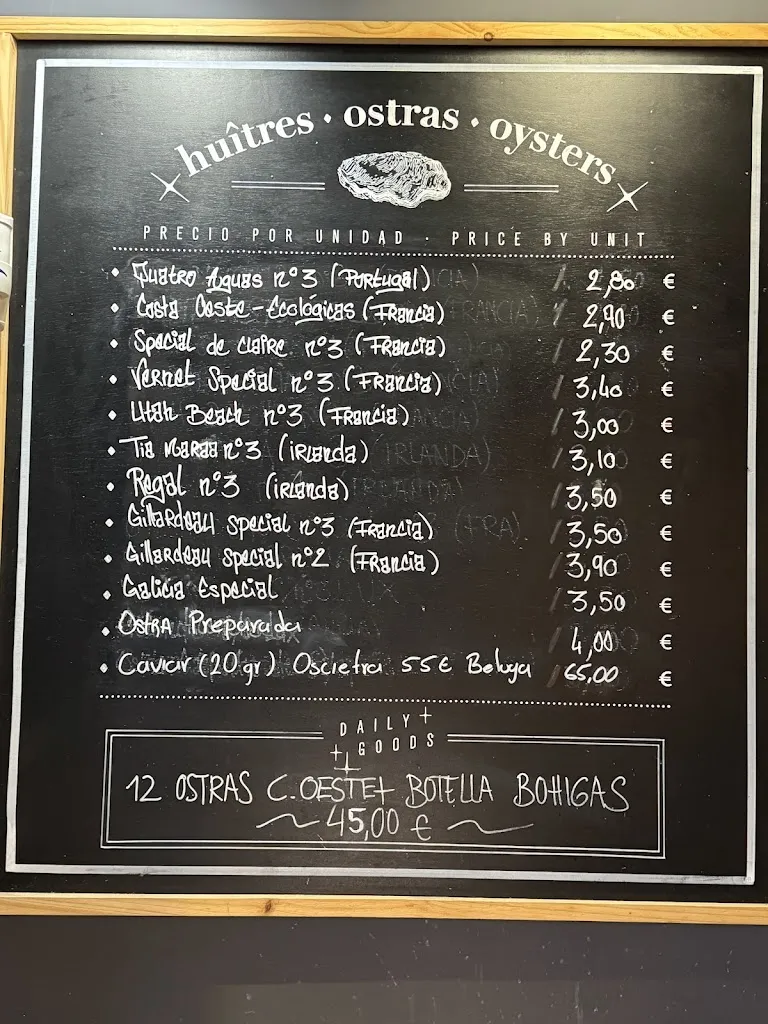 huîtres · ostras · oysters
PRECIO POR UNIDAD · PRICE BY UNIT
• Quatro Aguas nº3 (Portugal) / 2,80 €
• Costa Oeste-Ecológicas (Francia) / 2,90 €
• Special de claire nº3 (Francia) / 2,30 €
• Vernet Special nº3 (Francia) / 3,40 €
• Utah Beach nº3 (Francia) / 3,00 €
• Tia Maraa nº3 (irlanda) / 3,10 €
• Regal nº3 (irlanda) / 3,50 €
• Gillardeau special nº3 (Francia) / 3,50 €
• Gillardeau special nº2 (Francia) / 3,90 €
• Galicia Especial / 3,50 €
• Ostra Preparada 4,00 €
• Caviar (20 gr) Oscietra 55€ Beluga / 65,00 €
DAILY
GOODS
12 OSTRAS C.OESTE+ BOTELLA BOHIGAS
45,00 €